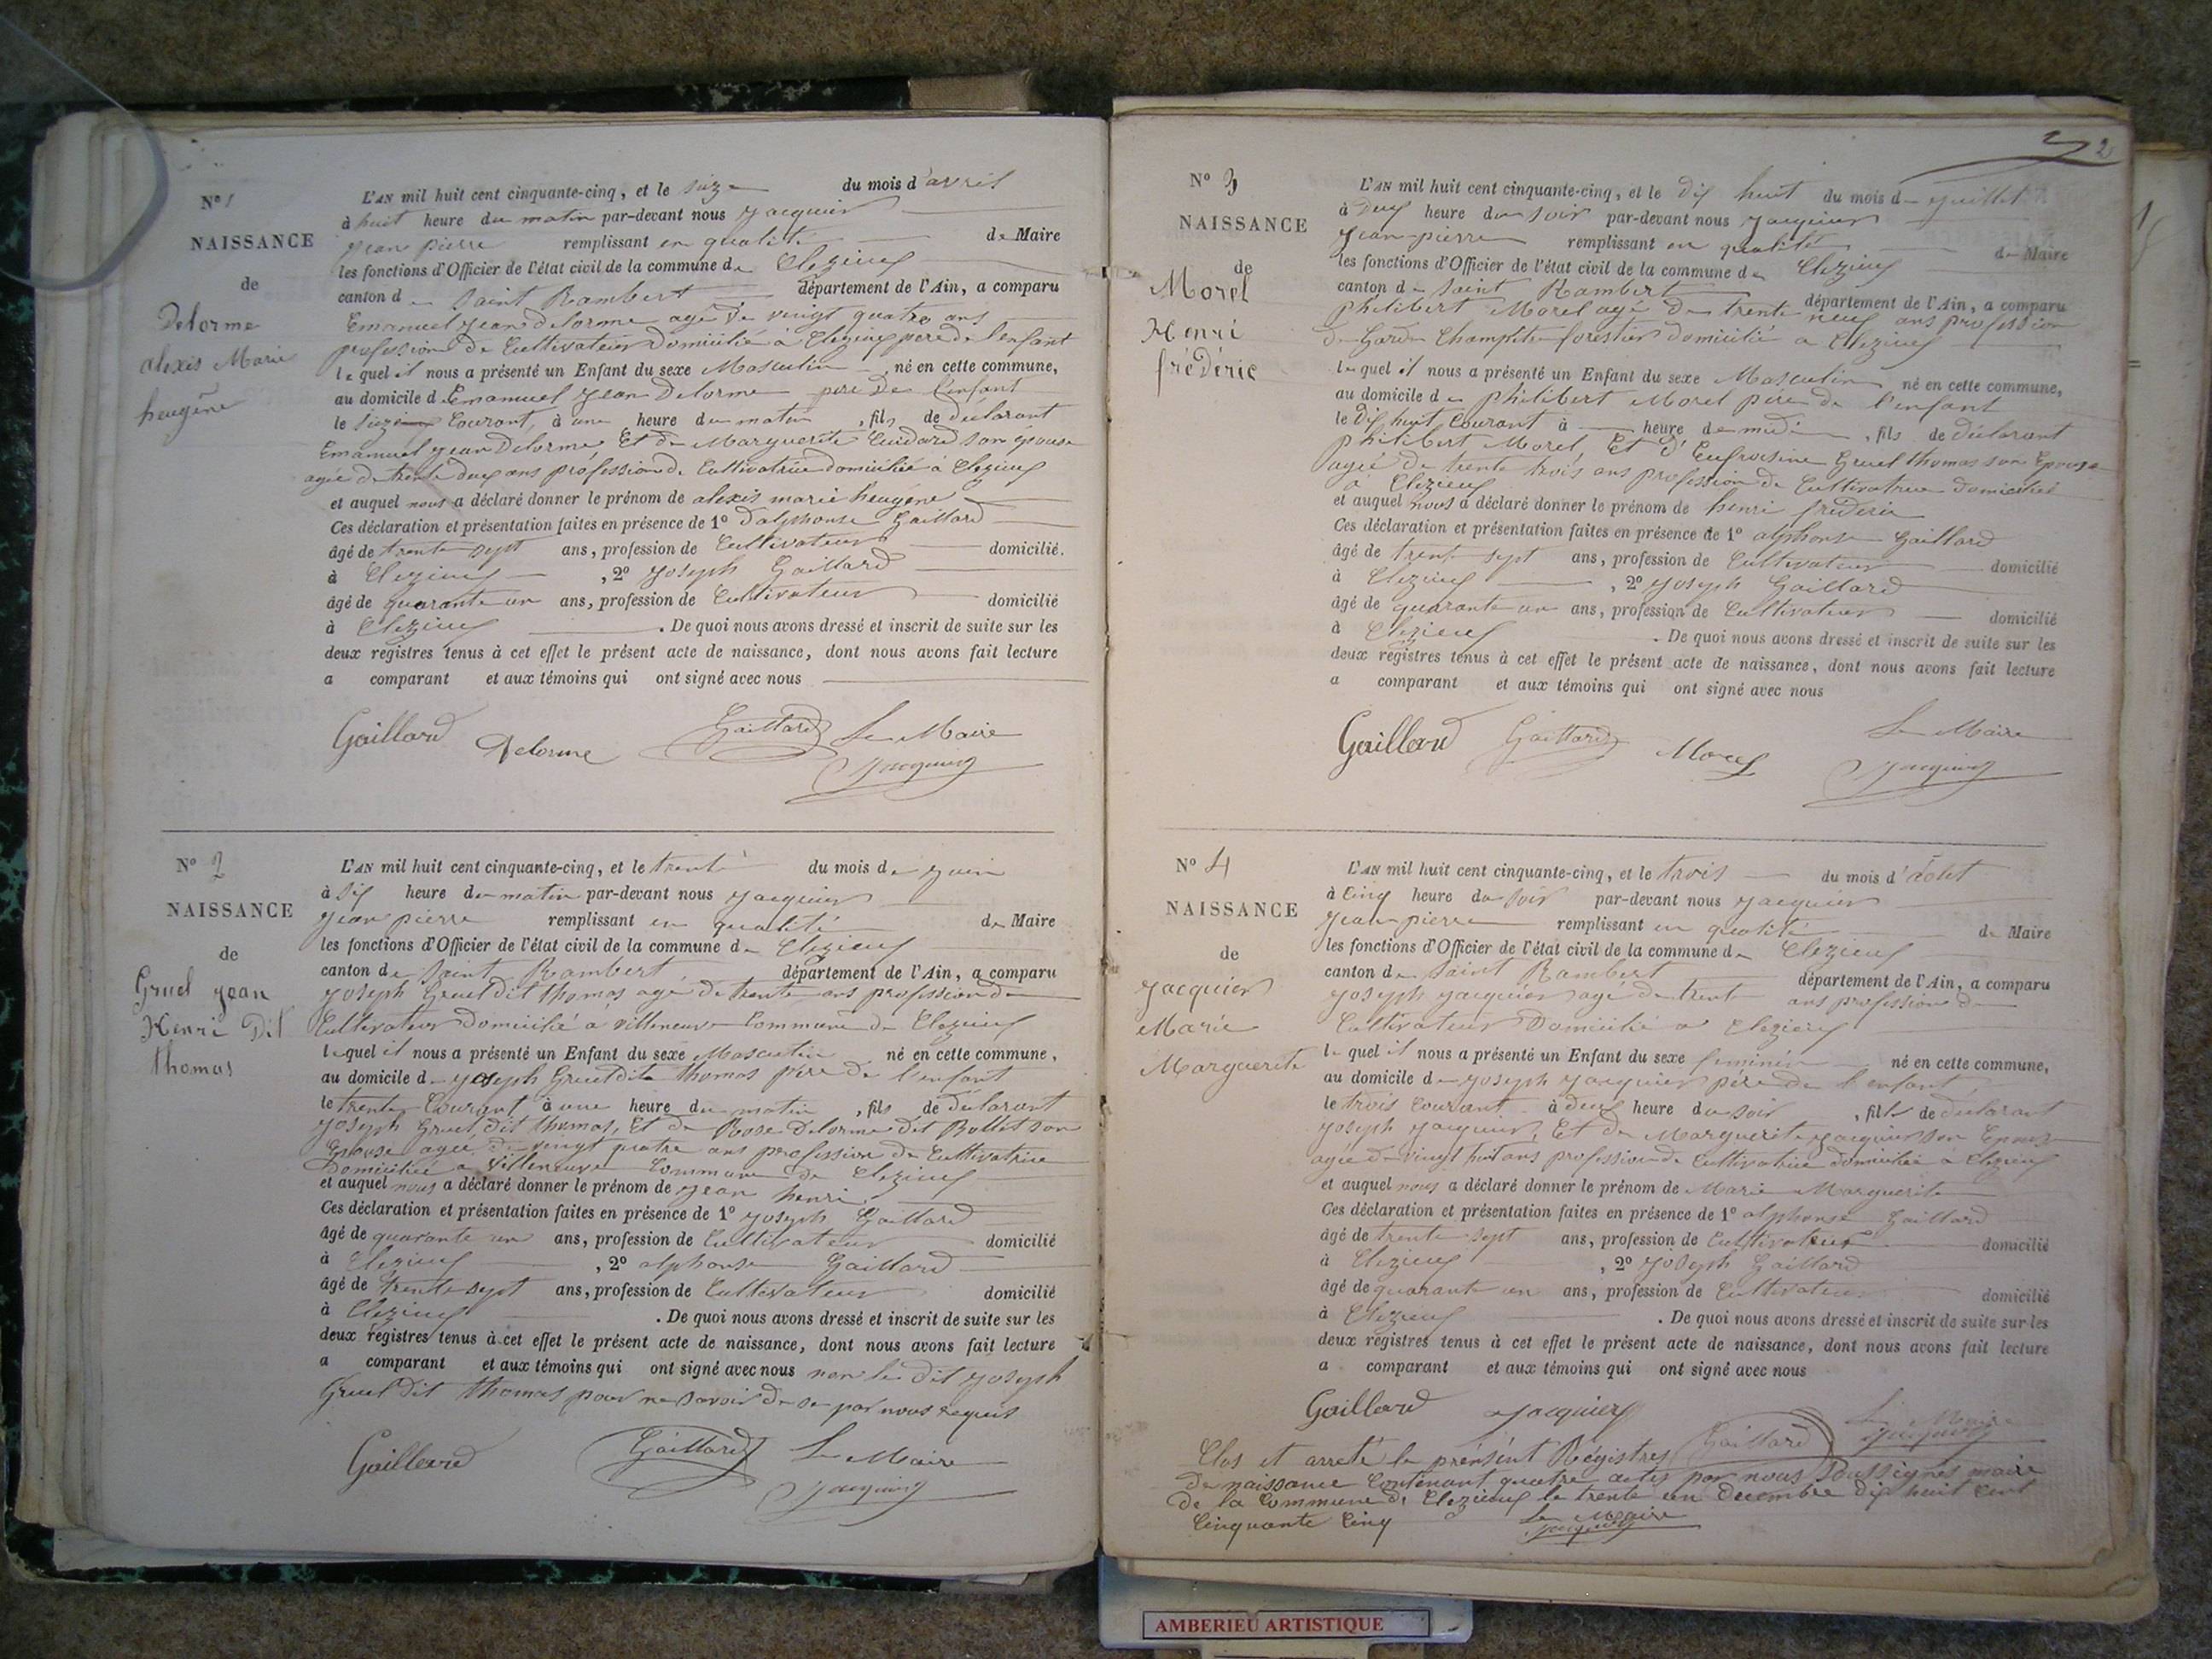 N° 1
NAISSANCE
de
Delorme
alexis Marie
heugêne
L'AN mil huit cent cinquante-cinq, et le seize du mois d'avril
à huit heure du matin par-devant nous Jacquier
Jean pierre remplissant en qualité de Maire
les fonctions d'Officier de l'état civil de la commune de Clezieux
canton de Saint Rambert département de l'Ain, a comparu
Emanuel Jean Delorme agé de vingt quatre ans
profession de Cultivateur Domicilié à Clezieux pere de l'enfant
lequel il nous a présenté un Enfant du sexe Masculin né en cette commune,
au domicile d Emanuel Jean Delorme pere de l'enfant
le seize Courant, à une heure du matin, fils de déclarant
Emanuel Jean Delorme Et de Marguerite son épouse
agée de trente deux ans profession de Cultivatrice domiciliée à Clezieux
et auquel nous a déclaré donner le prénom de alexis marie heugêne
Ces déclaration et présentation faites en présence de 1° d'alphonse Gaillard
âgé de trente sept ans, profession de Cultivateur domicilié.
à Clezieux, 2° Joseph Gaillard
âgé de quarante un ans, profession de Cultivateur domicilié
à Clezieux. De quoi nous avons dressé et inscrit de suite sur les
deux registres tenus à cet effet le présent acte de naissance, dont nous avons fait lecture
a comparant et aux témoins qui ont signé avec nous
Gaillard Delorme Gaillard Le Maire
Jacquier
N° 2
NAISSANCE
de
Gruel Jean
Henri Dit
thomas
L'AN mil huit cent cinquante-cinq, et le trente du mois de Juin
à six heure du matin par-devant nous Jacquier
Jean pierre remplissant en qualité de Maire
les fonctions d'Officier de l'état civil de la commune de Clezieux
canton de Saint Rambert département de l'Ain, a comparu
Joseph Gruel dit thomas agé de trente ans profession de
Cultivateur Domicilié à villeneuve Commune de Clezieux
lequel il nous a présenté un Enfant du sexe Masculin né en cette commune,
au domicile de Joseph Gruel dit thomas père de l'enfant
le trente Courant à une heure du matin, fils de déclarant
Joseph Gruel dit thomas, Et de Rose Delorme dit Rollet son
Epouse agée de vingt quatre ans profession de Cultivatrice
Domiciliée a villeneuve Commune de Clezieux
et auquel nous a déclaré donner le prénom de Jean henri
Ces déclaration et présentation faites en présence de 1° Joseph Gaillard
âgé de quarante un ans, profession de Cultivateur domicilié
à Clezieux, 2° alphonse Gaillard
âgé de trente sept ans, profession de Cultivateur domicilié
à Clezieux. De quoi nous avons dressé et inscrit de suite sur les
deux registres tenus à cet effet le présent acte de naissance, dont nous avons fait lecture
a comparant et aux témoins qui ont signé avec nous non le dit Joseph
Gruel dit thomas pour ne savoir de ce par nous requis
Gaillard Gaillard Le Maire
Jacquier
2
N° 3
NAISSANCE
de
Morel
Henri
fréderic
L'AN mil huit cent cinquante-cinq, et le dix huit du mois de Juillet
à deux heure du soir par-devant nous Jacquier
Jean pierre remplissant en qualité de Maire
les fonctions d'Officier de l'état civil de la commune de Clezieux
canton de Saint Rambert département de l'Ain, a comparu
philibert Morel agé de trente neuf ans profession
de Garde Champêtre forestier domicilié a Clezieux
lequel il nous a présenté un Enfant du sexe Masculin né en cette commune,
au domicile de philibert Morel père de l'enfant
le dix huit Courant à heure de midi, fils de déclarant
philibert Morel, Et d'Eufrosine Gruel thomas son Epouse
agée de trente trois ans profession de Cultivatrice domiciliée
à Clezieux
et auquel nous a déclaré donner le prénom de henri fréderic
Ces déclaration et présentation faites en présence de 1° alphonse Gaillard
âgé de trente sept ans, profession de Cultivateur domicilié
à Clezieux, 2° Joseph Gaillard
âgé de quarante un ans, profession de Cultivateur domicilié
à Clezieux. De quoi nous avons dressé et inscrit de suite sur les
deux registres tenus à cet effet le présent acte de naissance, dont nous avons fait lecture
a comparant et aux témoins qui ont signé avec nous
Gaillard Gaillard Morel Le Maire
Jacquier
N° 4
NAISSANCE
de
Jacquier
Marie
Marguerite
L'AN mil huit cent cinquante-cinq, et le trois du mois d'Aout
à Cinq heure du soir par-devant nous Jacquier
Jean pierre remplissant en qualité de Maire
les fonctions d'Officier de l'état civil de la commune de Clezieux
canton de Saint Rambert département de l'Ain, a comparu
Joseph Jacquier agé de trente ans profession de
Cultivateur Domicilié a Clezieux
lequel il nous a présenté un Enfant du sexe feminin né en cette commune,
au domicile de Joseph Jacquier père de l'enfant
le trois Courant à deux heure du soir, fille de déclarant
Joseph Jacquier, Et de Marguerite Jacquier son Epouse
agée de vingt huit ans profession de Cultivatrice domiciliée à Clezieux
et auquel nous a déclaré donner le prénom de Marie Marguerite
Ces déclaration et présentation faites en présence de 1° alphonse Gaillard
âgé de trente sept ans, profession de Cultivateur domicilié
à Clezieux, 2° Joseph Gaillard
âgé de quarante un ans, profession de Cultivateur domicilié
à Clezieux. De quoi nous avons dressé et inscrit de suite sur les
deux registres tenus à cet effet le présent acte de naissance, dont nous avons fait lecture
a comparant et aux témoins qui ont signé avec nous
Gaillard Jacquier Gaillard Le Maire
Jacquier
Clos et arreté le présent Régistres
de naissance Contenant quatre actes par nous Soussignés maire
de la Commune de Clezieux le trente un Decembre dix huit cent
Cinquante Cinq Le Maire
Jacquier
AMBERIEU ARTISTIQUE